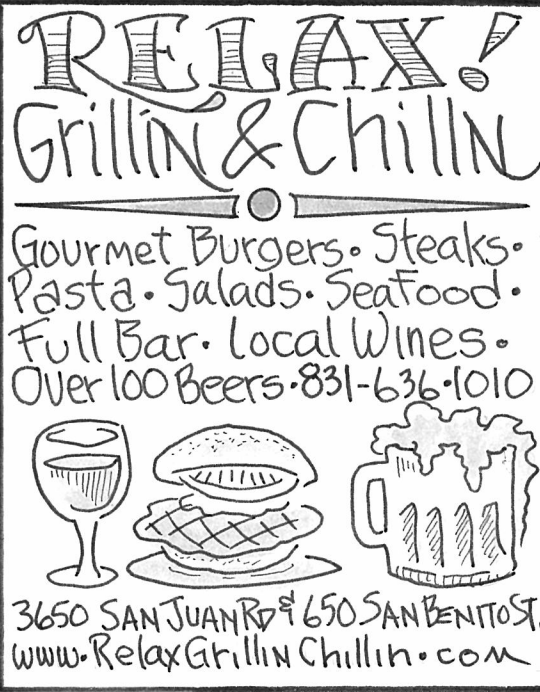 RELAX!
Grillin & Chillin
Gourmet Burgers • Steaks •
Pasta • Salads • Seafood •
Full Bar • Local Wines •
Over 100 Beers • 831-636•1010
3650 SAN JUAN RD & 650 SAN BENITO ST.
www.RelaxGrillinChillin.com